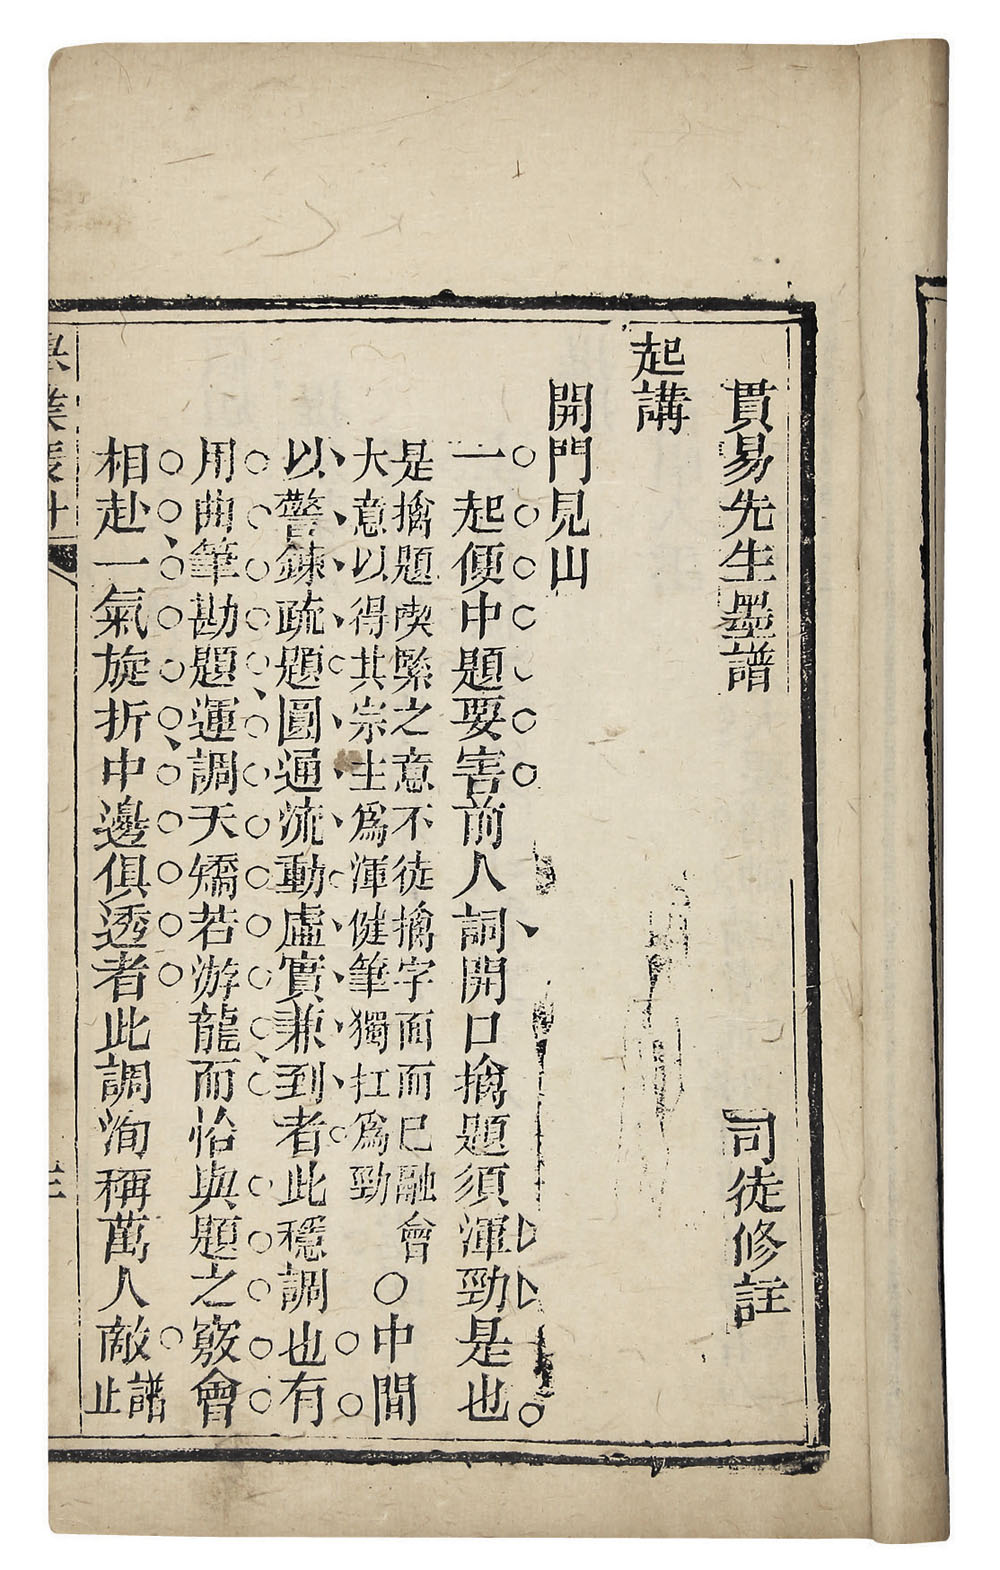 貫易先生墨譜　司徒修註
起講
開門見山
一起便中題要害前人詞開口擒題須渾勁是也
是擒題喫緊之意不徒擒字面而已融會
大意以得其宗主爲渾健筆獨扛爲勁
○中間
以警鍊疏題圓通流動虛實兼到者此穩調也有
用曲筆勘題運調天矯若游龍而恰與題之竅會
相赴一氣旋折中邊俱透者此調洵稱萬人敵
譜止